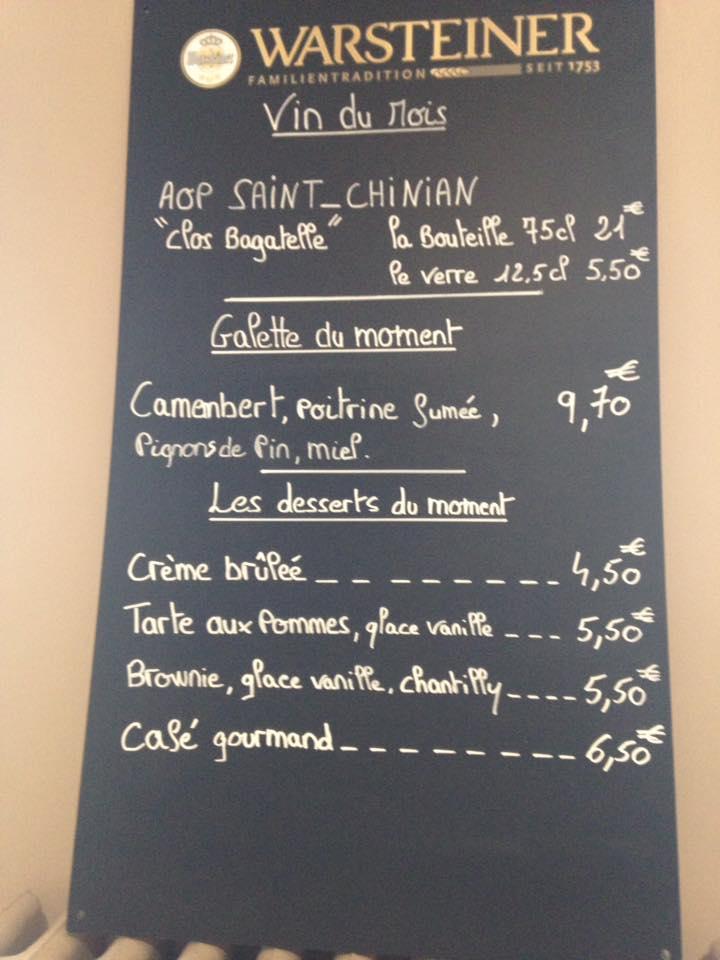 WARSTEINER
FAMILIENTRADITION SEIT 1753
Vin du Mois
AOP SAINT_CHINIAN
"Clos Bagatelle" la Bouteille 75cl 21€
le verre 12,5cl 5,50€
Galette du moment
Camembert, poitrine fumée, 9,70€
Pignons de Pin, miel.
Les desserts du moment
Crème brûleé _ _ _ _ _ _ _ _ 4,50€
Tarte aux Pommes, glace vanille _ _ _ 5,50€
Brownie, glace vanille, chantilly _ _ _ _ 5,50€
Café gourmand _ _ _ _ _ _ _ _ _ 6,50€